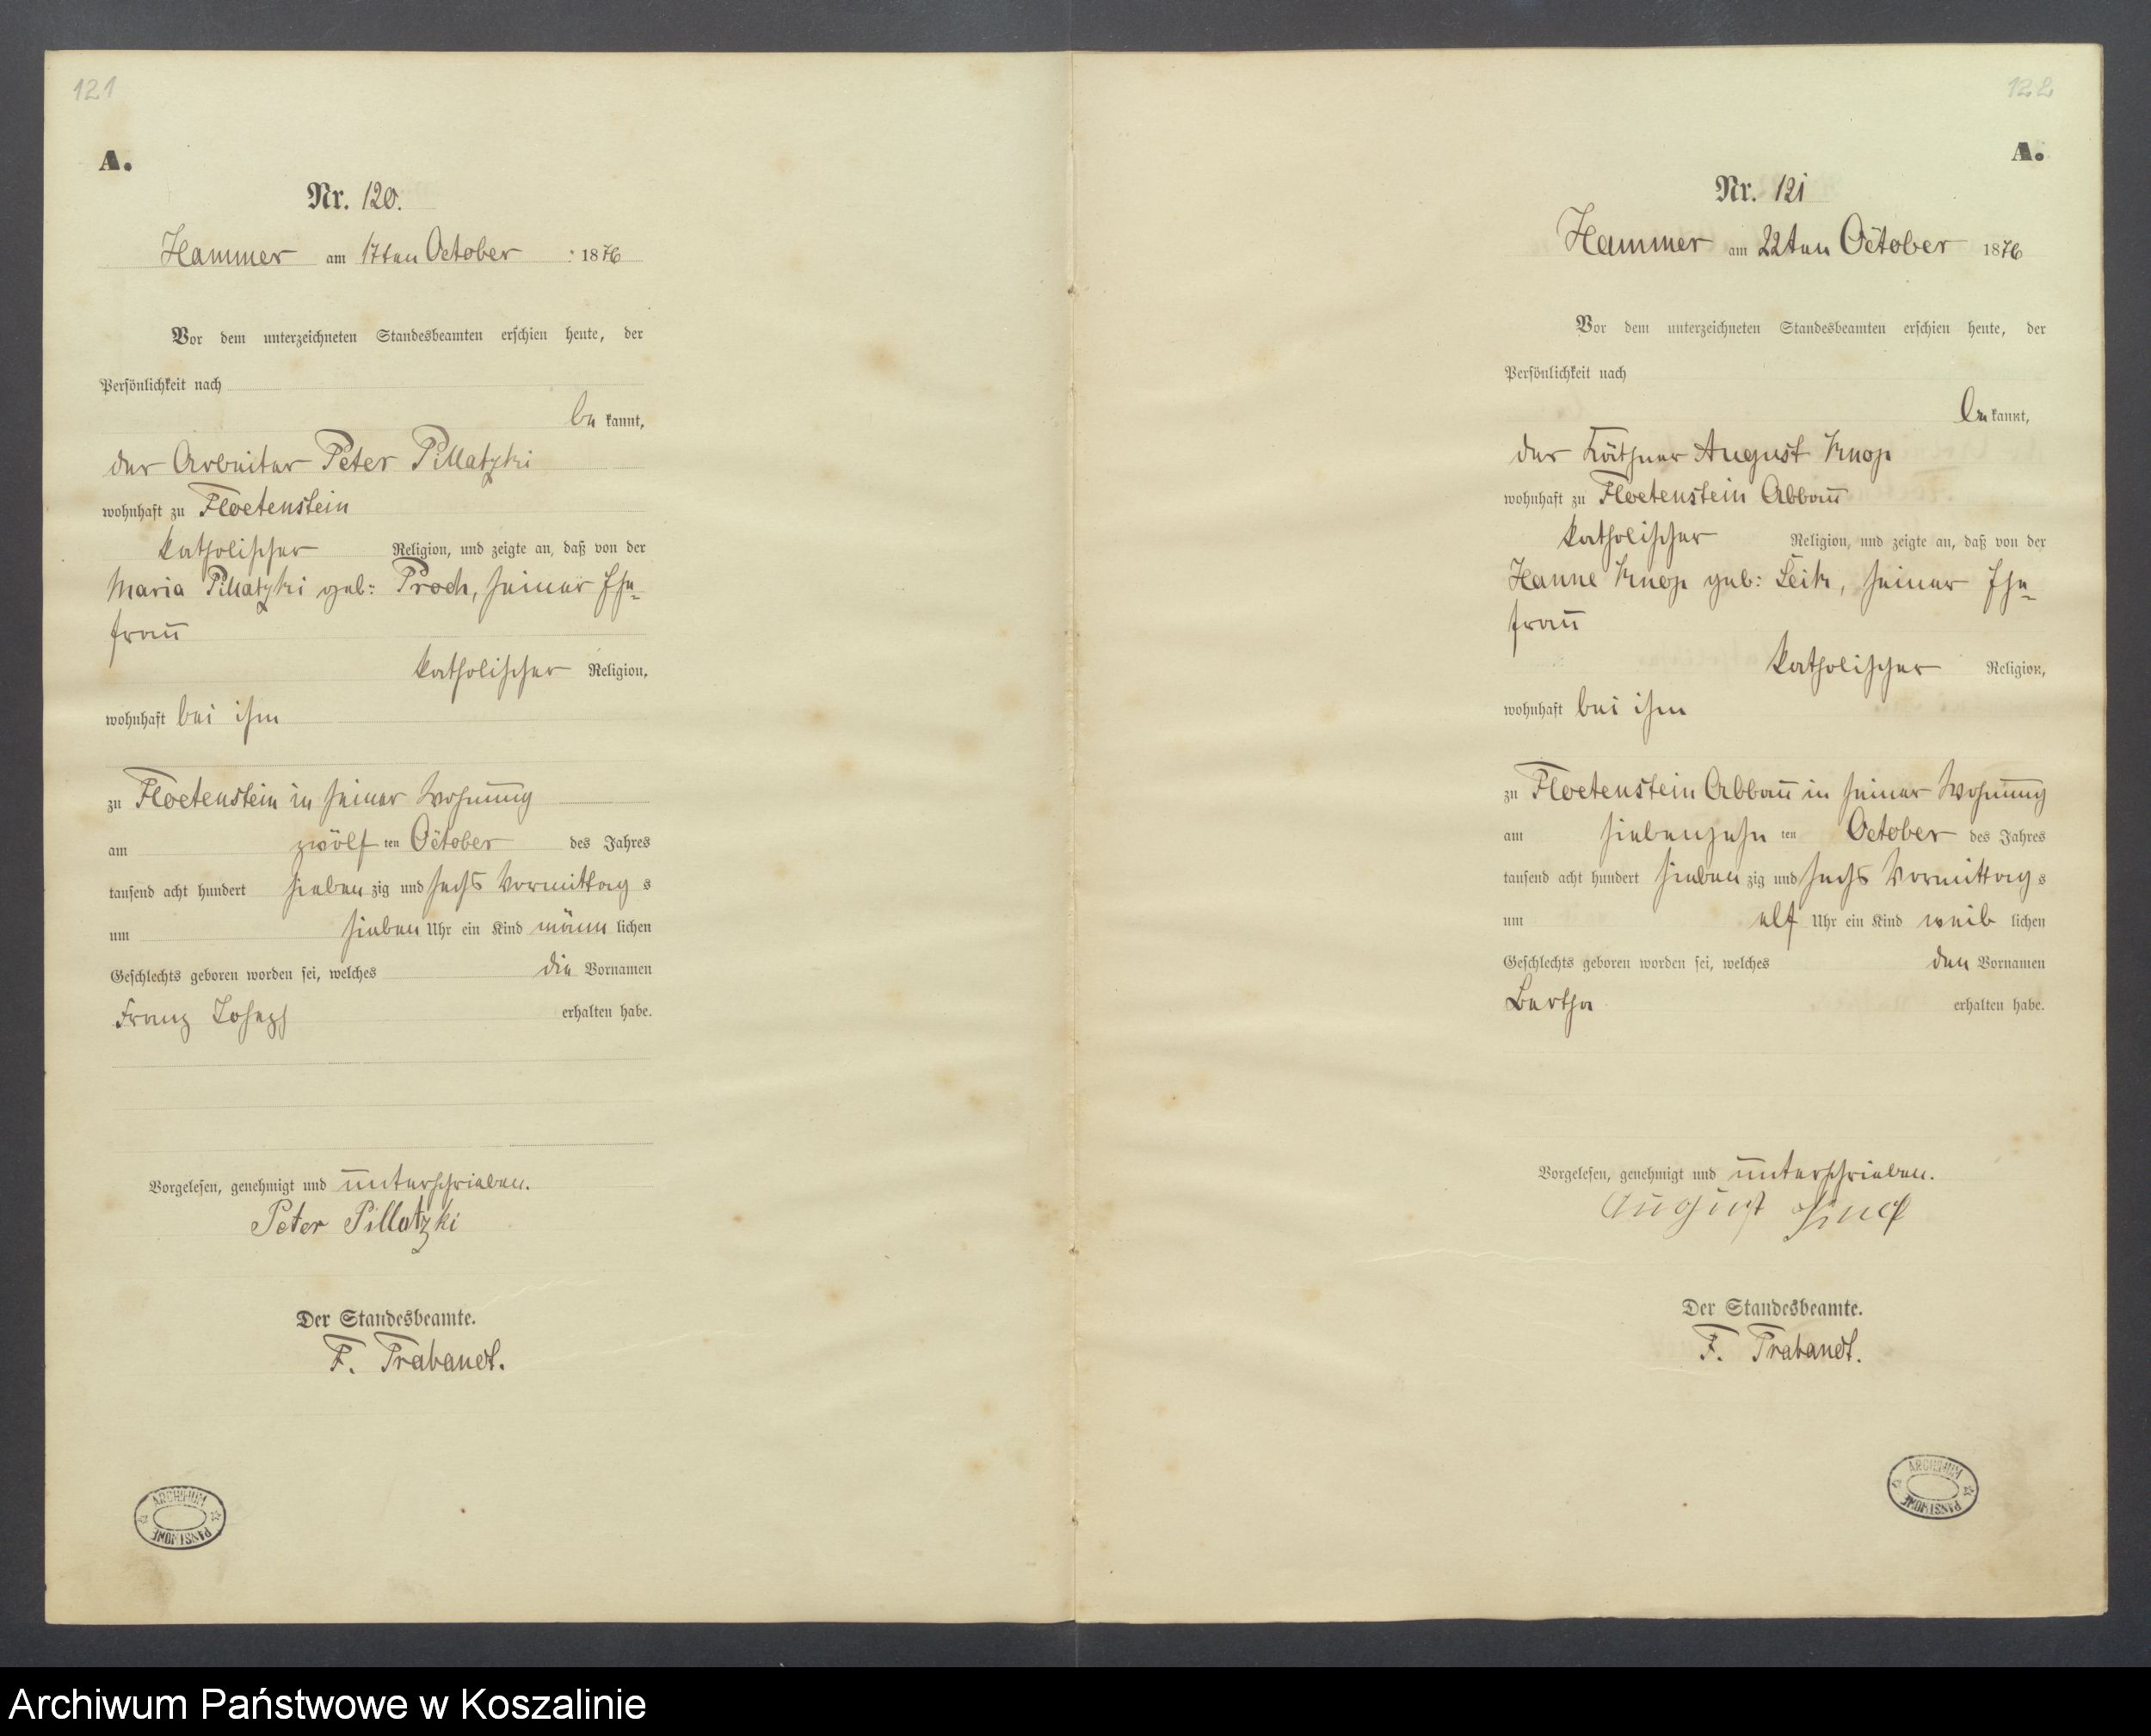 121
A.
Nr. 120.
Hammer am 17ten October 1876
Vor dem unterzeichneten Standesbeamten erschien heute, der
Persönlichkeit nach
be kannt,
der Arbeiter Peter Pillatzki
wohnhaft zu Floetenstein
katholischer Religion, und zeigte an, daß von der
Maria Pillatzki geb: Proch, seiner Ehe=
frau
katholischer Religion,
wohnhaft bei ihm
zu Floetenstein in seiner Wohnung
am zwölf ten October des Jahres
tausend acht hundert sieben zig und sechs Vormittag s
um sieben Uhr ein Kind männ lichen
Geschlechts geboren worden sei, welches die Vornamen
Franz Joseph erhalten habe.
Vorgelesen, genehmigt und unterschrieben.
Peter Pillatzki
Der Standesbeamte.
F. Trabandt.
ARCHIWUM PAŃSTWOWE
122
A.
Nr. 121
Hammer am 22ten October 1876
Vor dem unterzeichneten Standesbeamten erschien heute, der
Persönlichkeit nach
be kannt,
der Käthner August Knop
wohnhaft zu Floetenstein Abbau
katholischer Religion, und zeigte an, daß von der
Hanne Knop geb: Leik, seiner Ehe=
frau
katholischer Religion,
wohnhaft bei ihm
zu Floetenstein Abbau in seiner Wohnung
am siebenzehn ten October des Jahres
tausend acht hundert sieben zig und sechs Vormittag s
um elf Uhr ein Kind weib lichen
Geschlechts geboren worden sei, welches den Vornamen
Bertha erhalten habe.
Vorgelesen, genehmigt und unterschrieben.
August
Der Standesbeamte.
F. Trabandt.
ARCHIWUM PAŃSTWOWE
Archiwum Państwowe w Koszalinie